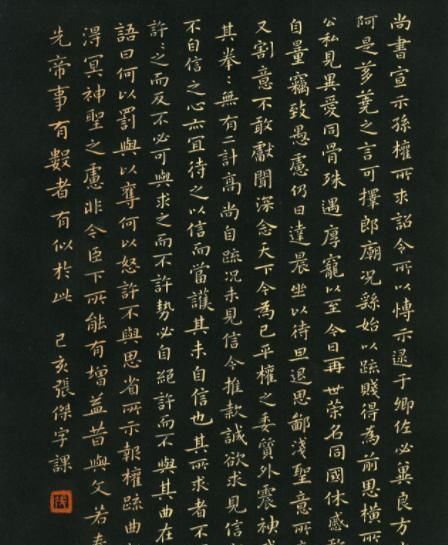 尚書宣示孫權所求詔令所以博示逮于卿佐必冀良方
阿是芻蕘之言可擇郎廟況繇始以踈賤得為前思橫所
公私見異愛同骨殊遇厚寵以至今日再世榮名同國休感
自量竊致愚慮仍日達晨坐以待旦退思鄙淺聖意所
又割意不敢獻聞深念天下今為已平權之委質外震神
其拳〻無有二計高尚自踈況未見信今推款誠欲求見信
不自信之心亦宜待之以信而當護其未自信也其所求者不
許〻之而反不必可與求之而不許勢必自絕許而不與其曲在
語曰何以罰與以奪何以怒許不與思省所示報權踈曲
得冥神聖之慮非今臣下所能有增益昔與文若奉
先帝事有數者有似於此 己亥張傑字課